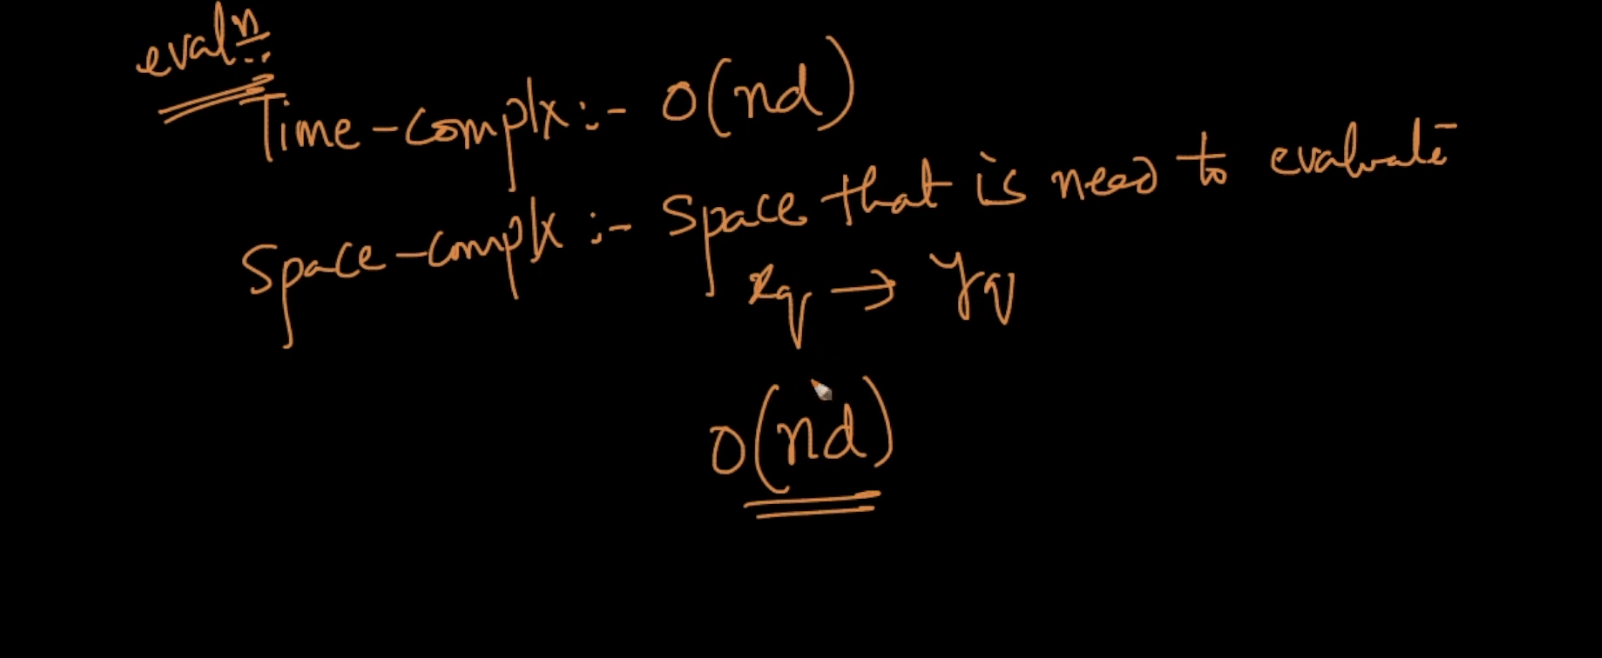 evaln
Time-complx:- O(nd)
Space-complx :- Space that is need to evaluate
xq → yq
O(nd)